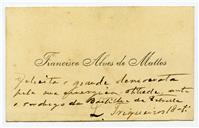 Francisco Alves de Mattos
Felicita o grande democrata
pela sua energica attitude ante
o da Bastilha de
L. Trigueiros 18-5º